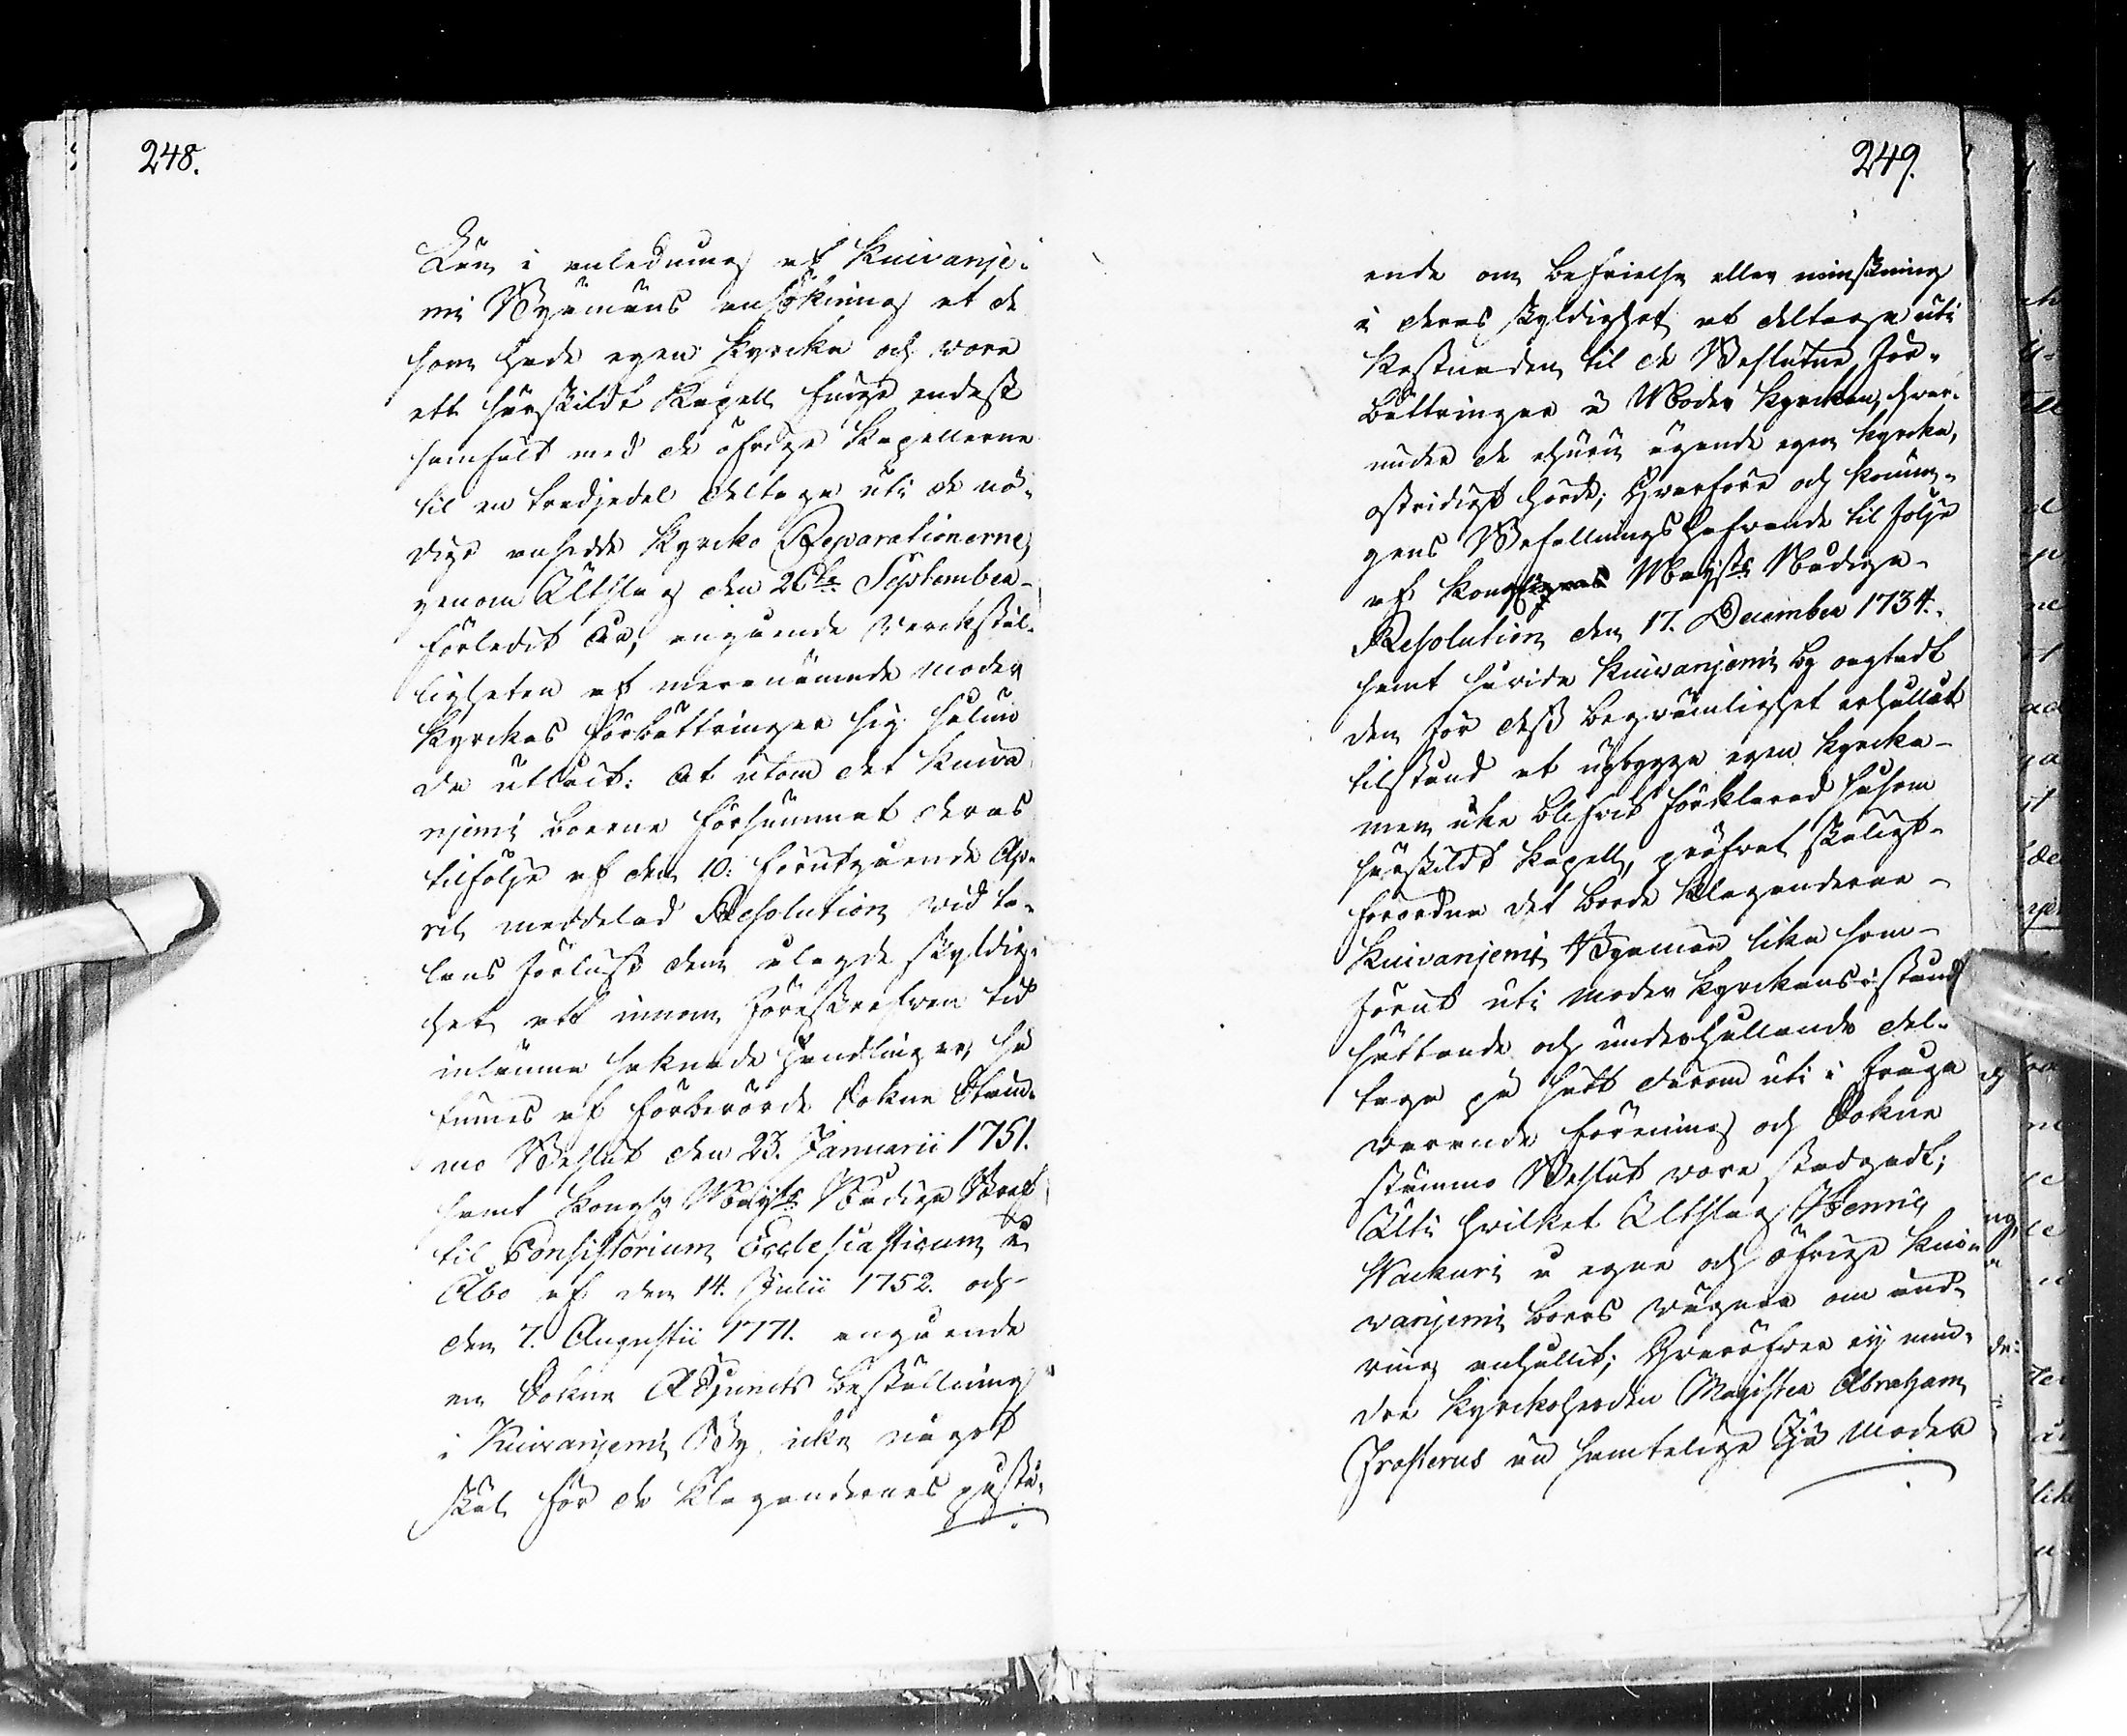 248.
Län i anledning af Kuivanje-
mi Byamäns ansökning at de
som hade egen kyrcka och vore
ett särskildt Kapell finge endast
samfält med de öfrige Kapellerne
til en tredjedel deltaga uti de nö-
dige ansedde kyrcko Reparationerne,
genom Utslag den 26te September
förledit år, angående verckstäl-
ligheten af merenämnde moder
kyrckas förbättringar sig sålun-
da utlåtit: at utom det Kuiva
njemi boerne försummat deras
tilfölje af den 10. förutgående Ap-
ril meddelad Resolution vid ta-
lans förlust dem ålagde skyldig-
het att innom föreskrefven tid
inlämna saknade Handlingar, så
funnes af förberörde Sokne Stäm-
mo Beslut den 23. Januarii 1751.
samt Kongl. Maysts Nådiga Bref
til Consistorium Ecclesiasticum i
Åbo af den 14. Julii 1752. och
den 7. Augustii 1771. angående
en Sokne Adjuncts beställning
i Kuivanjemi By, icke något
skäl för de klagandernes påstå-
249.
ende om befrielse eller minskning
i deras skyldighet at deltaga uti
kostnaden til de Beslutne för-
bättringar å Moder kyrckan, hvar-
under de ehuru ägande egen kyrcka,
ostridigt hörde; Hvarföre och konun-
gens Befallningshafvande til följe
af Kongl Maysts Nådiga
Resolution den 17. December 1734.
samt såvida Kuivanjemi by
den för dess beqvämlighet erhållit
tilstånd at upbygga egen kyrcka
men icke blifvit förklarad såsom
särskildt kapell, pröfvat skäligt
förordna det borde klaganderne
Kuivanjemi Byamän lika som
förut uti moder kyrckans i stånd
sättande och underhållande del-
taga på sätt derom uti i fråga
varande förening och Sokne
stämmo Beslut vore stadgadt;
Uti hvilket Utslag Henric
Wackuri å egne och öfrige Kui-
vanjemi boers vägnar om änd-
ring anhållit; Hvaröfver ej min-
dre kyrckoherden Magister Abraham
Frosterus än samtelige Ijå Moder